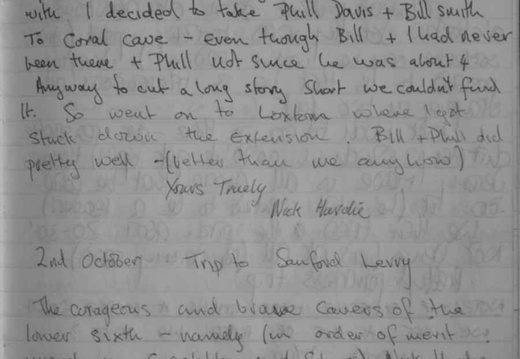 with I decided to take Phill Davis + Bill Smith
To Coral cave - Even though Bill + I had never
been there + Phill not since he was about 4
Anyway to cut a long story short we couldn't find
It. So went on to Loxton where I got
stuck down the extension. Bill + Phill did
pretty well - (better than me anyhow)
Yours Truely
Nick Hardie
2nd October Trip to Sanford Levvy
The corageous and brave cavers of the
lower sixth - namely (in order of merit